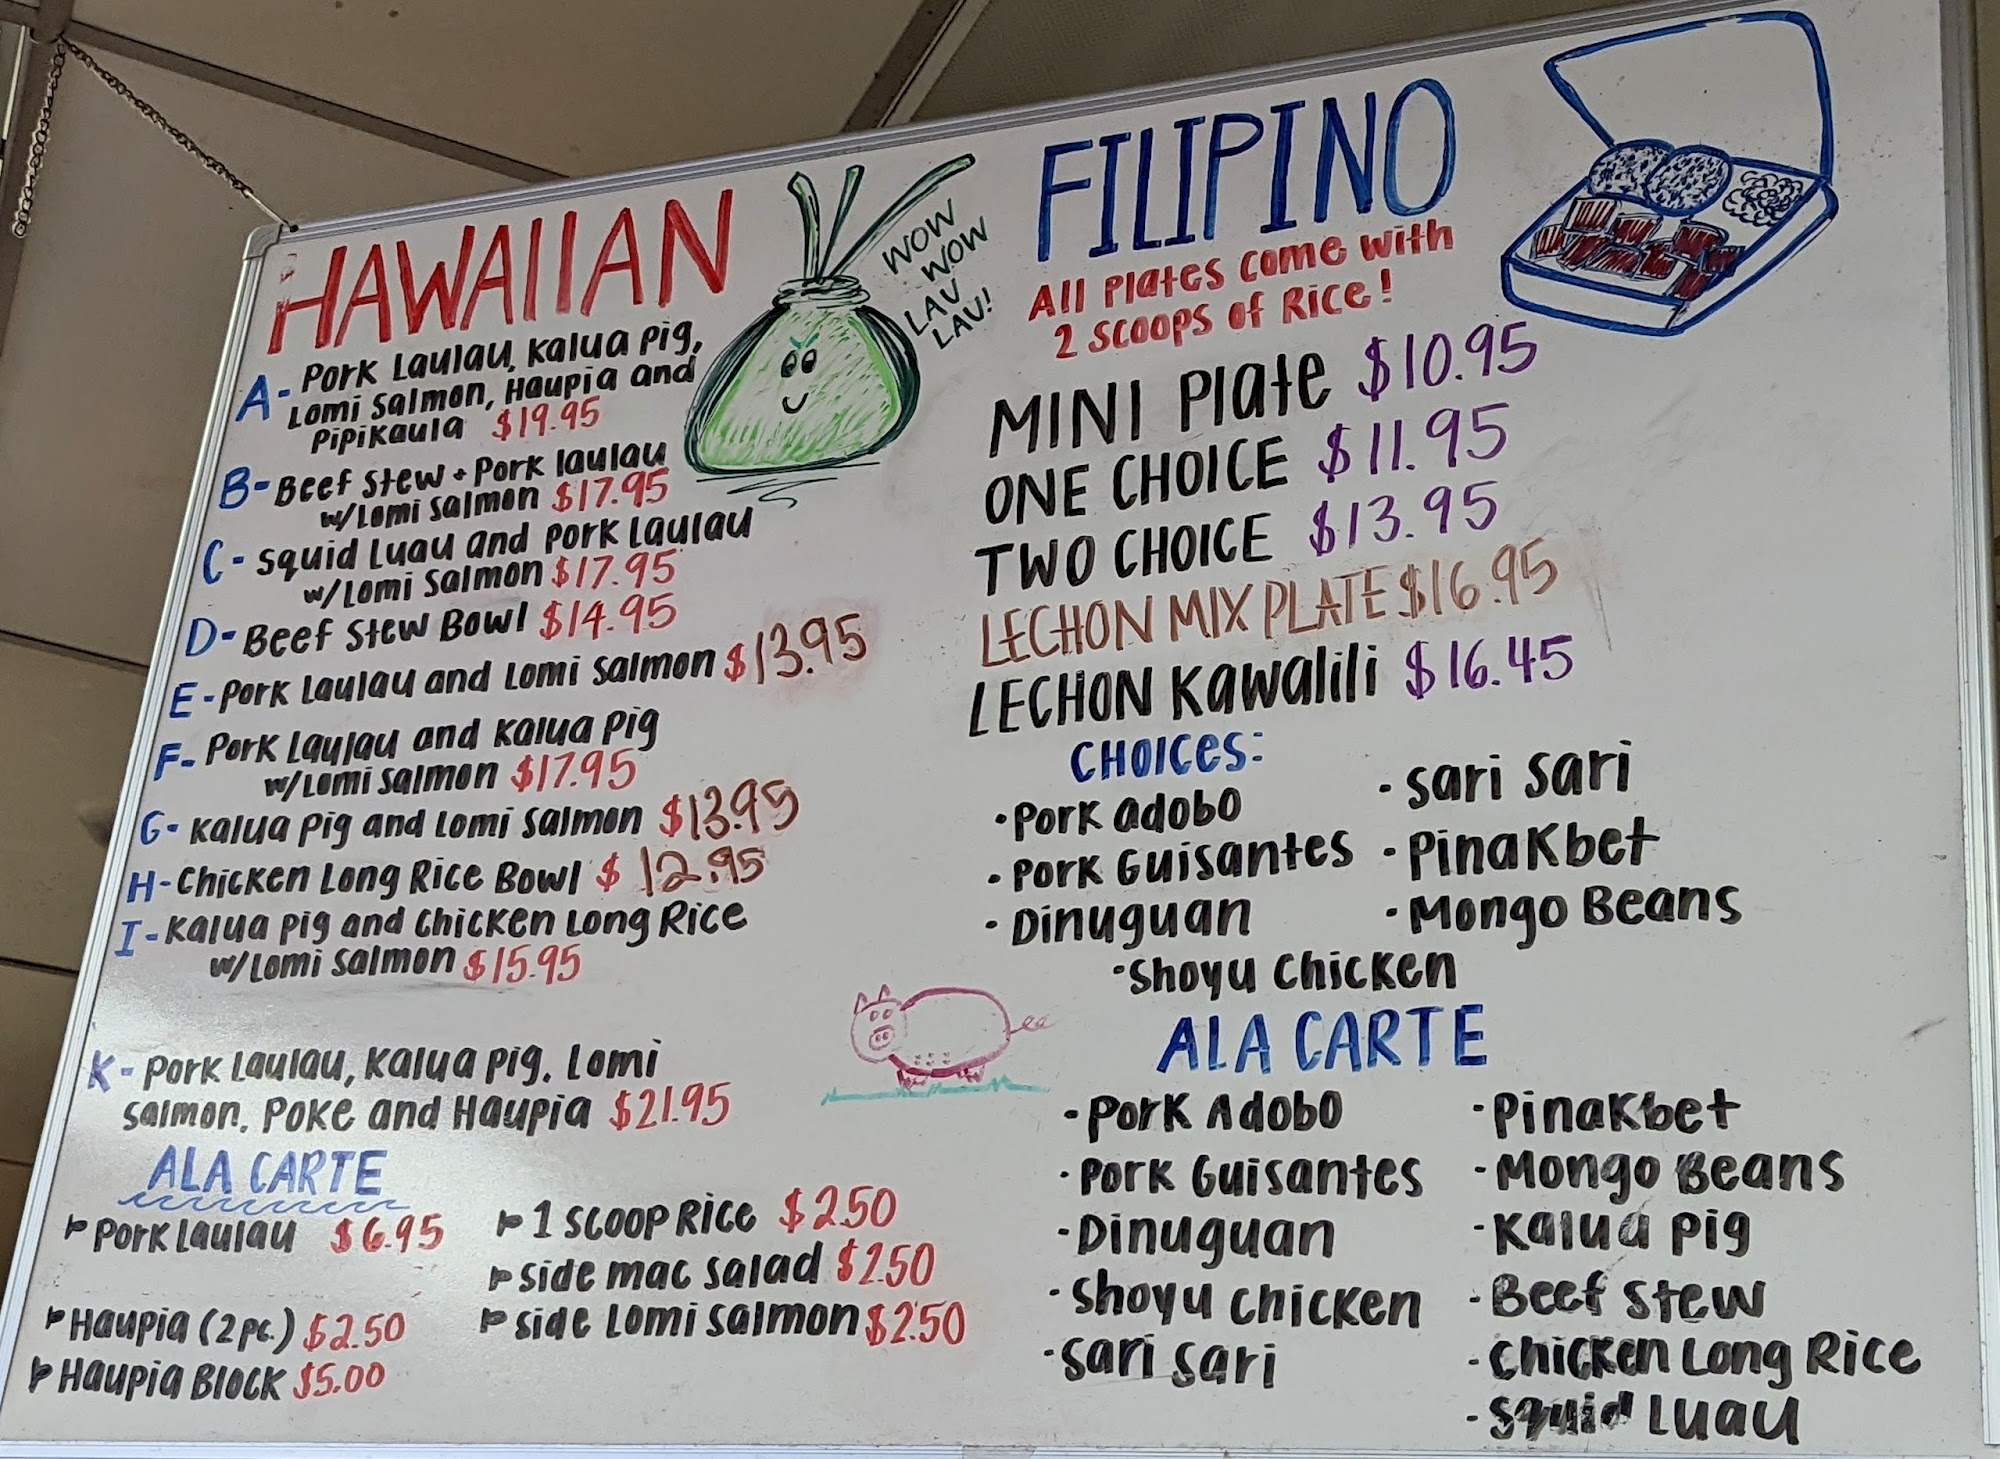 HAWAIIAN
A - Pork Laulau, Kalua Pig,
Lomi Salmon, Haupia and
Pipikaula $19.95
B - Beef Stew + Pork laulau
w/Lomi Salmon $17.95
C - Squid Luau and Pork Laulau
w/Lomi Salmon $17.95
D - Beef Stew Bowl $14.95
E - Pork Laulau and Lomi Salmon $13.95
F - Pork Laulau and Kalua Pig
w/Lomi Salmon $17.95
G - Kalua Pig and Lomi Salmon $13.95
H - Chicken Long Rice Bowl $12.95
I - Kalua Pig and Chicken Long Rice
w/Lomi Salmon $15.95
K - Pork Laulau, Kalua Pig, Lomi
Salmon, Poke and Haupia $21.95
ALA CARTE
Pork Laulau $6.95
Haupia (2pc.) $2.50
Haupia Block $5.00
1 Scoop Rice $2.50
Side Mac Salad $2.50
Side Lomi Salmon $2.50
WOW
WOW
LAV
LAU!
FILIPINO
All Plates Come with
2 Scoops of Rice!
MINI Plate $10.95
ONE CHOICE $11.95
TWO CHOICE $13.95
LECHON MIX PLATE $16.95
LECHON Kawalili $16.45
CHOICES:
· Pork Adobo
· Pork Guisantes
· Dinuguan
· Sari Sari
· Pinakbet
· Mongo Beans
· Shoyu Chicken
ALA CARTE
· Pork Adobo
· Pork Guisantes
· Dinuguan
· Shoyu Chicken
· Sari Sari
· Pinakbet
· Mongo Beans
· Kalua Pig
· Beef Stew
· Chicken Long Rice
· Squid Luau